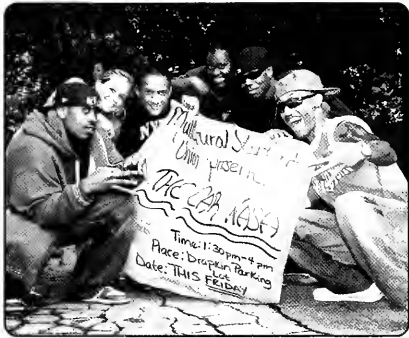 Multicultural Student
Union present
THE CAR WASH
Time: 1:30 pm-4 pm
Place: Drapkin Parking
Lot
Date: THIS FRIDAY